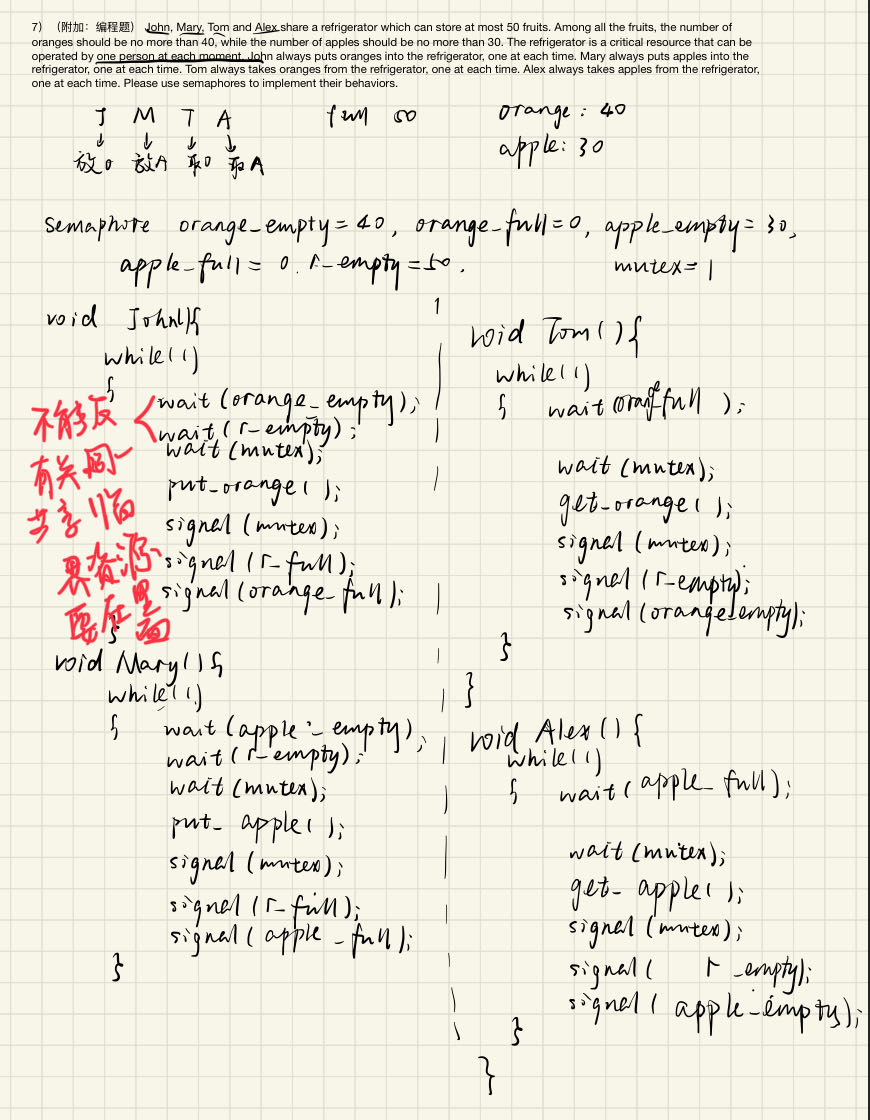 7) （附加：编程题） John, Mary, Tom and Alex share a refrigerator which can store at most 50 fruits. Among all the fruits, the number of
oranges should be no more than 40, while the number of apples should be no more than 30. The refrigerator is a critical resource that can be
operated by one person at each moment. John always puts oranges into the refrigerator, one at each time. Mary always puts apples into the
refrigerator, one at each time. Tom always takes oranges from the refrigerator, one at each time. Alex always takes apples from the refrigerator,
one at each time. Please use semaphores to implement their behaviors.
J M T A full 50 orange: 40
↓ ↓ ↓ ↓
放O 放A 取O 取A apple: 30
semaphore orange_empty = 40, orange_full = 0, apple_empty = 30,
apple_full = 0. r_empty = 50. mutex = 1
void John(){
while(1)
{
wait(orange_empty);
wait(r_empty);
wait(mutex);
put_orange();
signal(mutex);
signal(r_full);
signal(orange_full);
}
不能反
有关同一
共享临
界资源
要在里面
void Mary(){
while(1)
{
wait(apple_empty);
wait(r_empty);
wait(mutex);
put_apple();
signal(mutex);
signal(r_full);
signal(apple_full);
}
void Tom(){
while(1)
{ wait orange_full );
wait(mutex);
get_orange();
signal(mutex);
signal(r_empty);
signal(orange_empty);
}
}
void Alex(){
while(1)
{ wait(apple_full);
wait(mutex);
get_apple();
signal(mutex);
signal( r_empty);
signal(apple_empty);
}
}